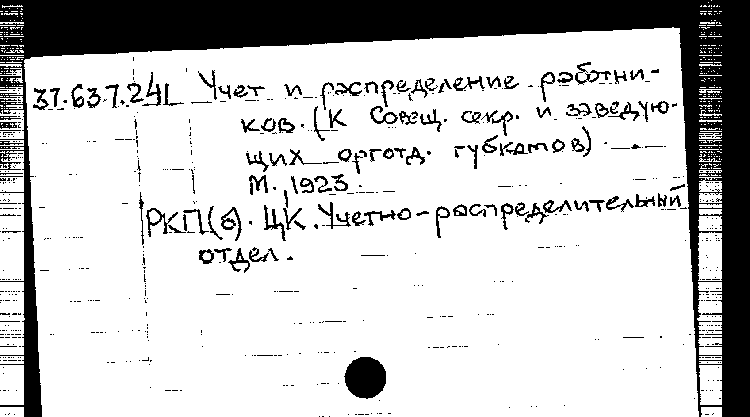 37.637.241 Учет и распределение работни-
ков. (К Совещ. секр. и заведую-
щих орготд. губкомов).
М., 1923.
РКП(б). ЦК. Учетно-распределительный
отдел.